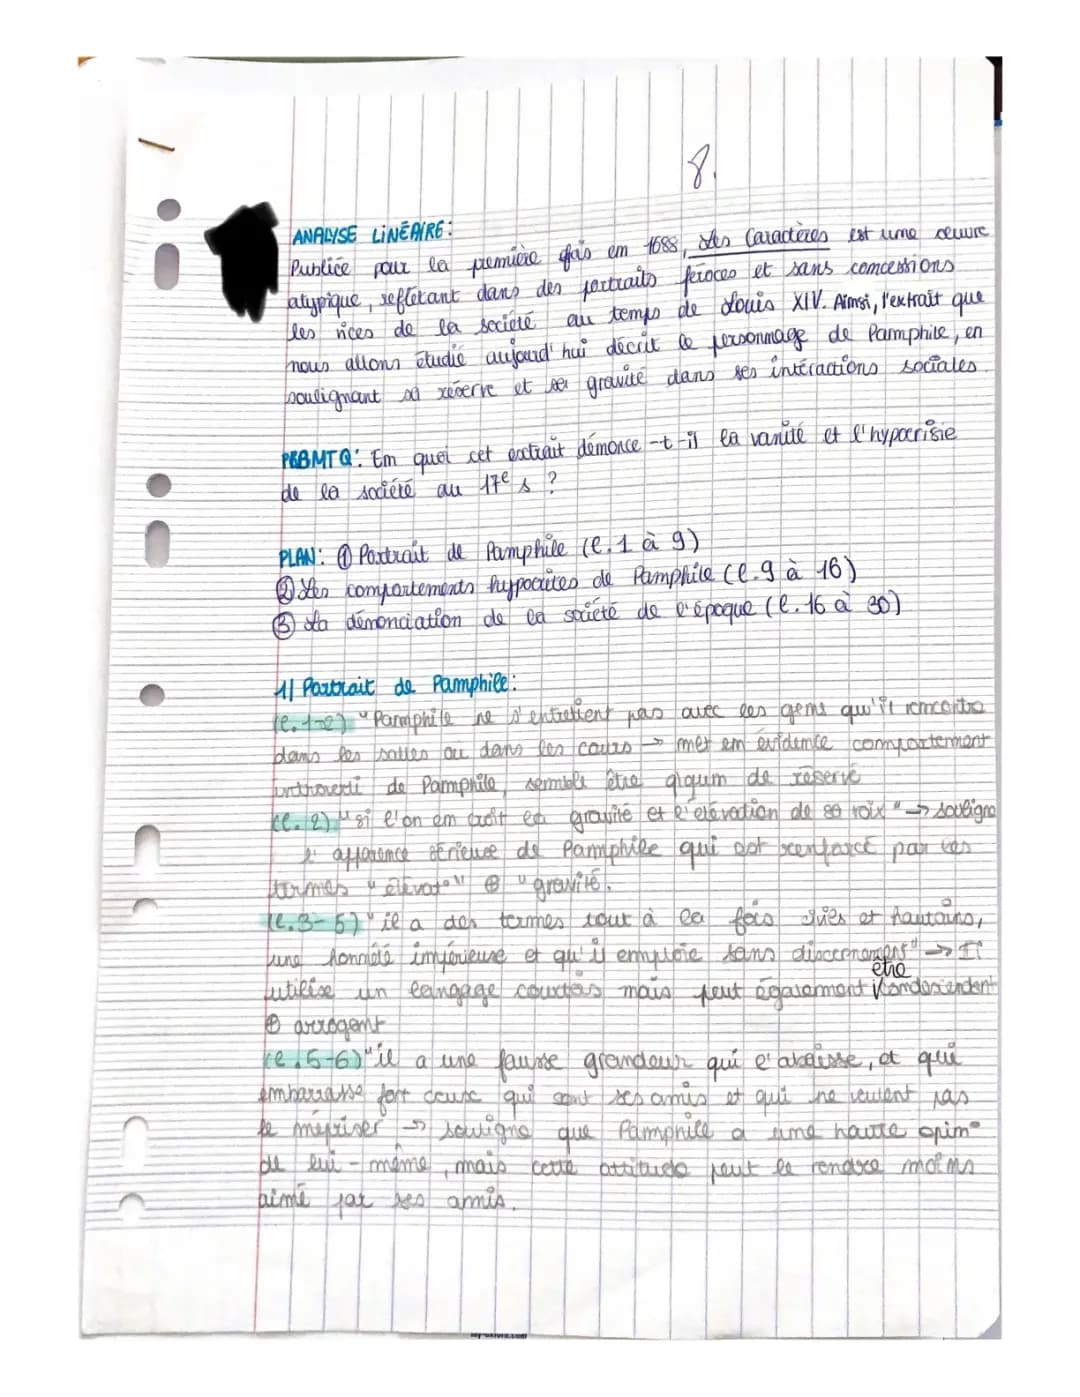 8.
ANALYSE LINÉAIRE:
Publiée pour la première fois en 1688, Les Caractères est une oeuvre
atypique, reflétant dans des portraits féroces et sans concessions
les vices de la société au temps de Louis XIV. Ainsi, l'extrait que
nous allons étudié aujourd'hui décrit le personnage de Pamphile, en
soulignant sa réserve et sa gravité dans ses intéractions sociales.
PRBMTQ: En quoi cet extrait dénonce-t-il la vanité et l'hypocrisie
de la société au 17e s ?
PLAN: ① Portrait de Pamphile (l.1 à 9)
② Les comportements hypocrites de Pamphile (l.9 à 16)
③ La dénonciation de la société de l'époque (l.16 à 30)
1/ Portrait de Pamphile:
(l.1-2) "Pamphile ne s'entretient pas avec les gens qu'il rencontre
dans les salles ou dans les cours → met en évidence comportement
introverti de Pamphile, semble être qlqun de réservé
(l.2) "si l'on en croit sa gravité et l'élévation de sa voix" → souligne
l'apparence sérieuse de Pamphile qui est renforcé par les
termes "élévat°" ⊕ "gravité.
(l.3-5) "il a des termes tout à la fois civils et hautains,
une honnêté impérieuse et qu'il emploie sans discernement" → Il
utilise un langage courtois mais peut également être condescendant
⊕ arrogant
(l.5-6) "il a une fausse grandeur qui l'abaisse, et qui
embarrasse fort ceux qui sont ses amis et qui ne veulent pas
le mépriser → souligne que Pamphile a une haute opin°
de lui-même, mais cette attitude peut le rendre moins
aimé par ses amis.